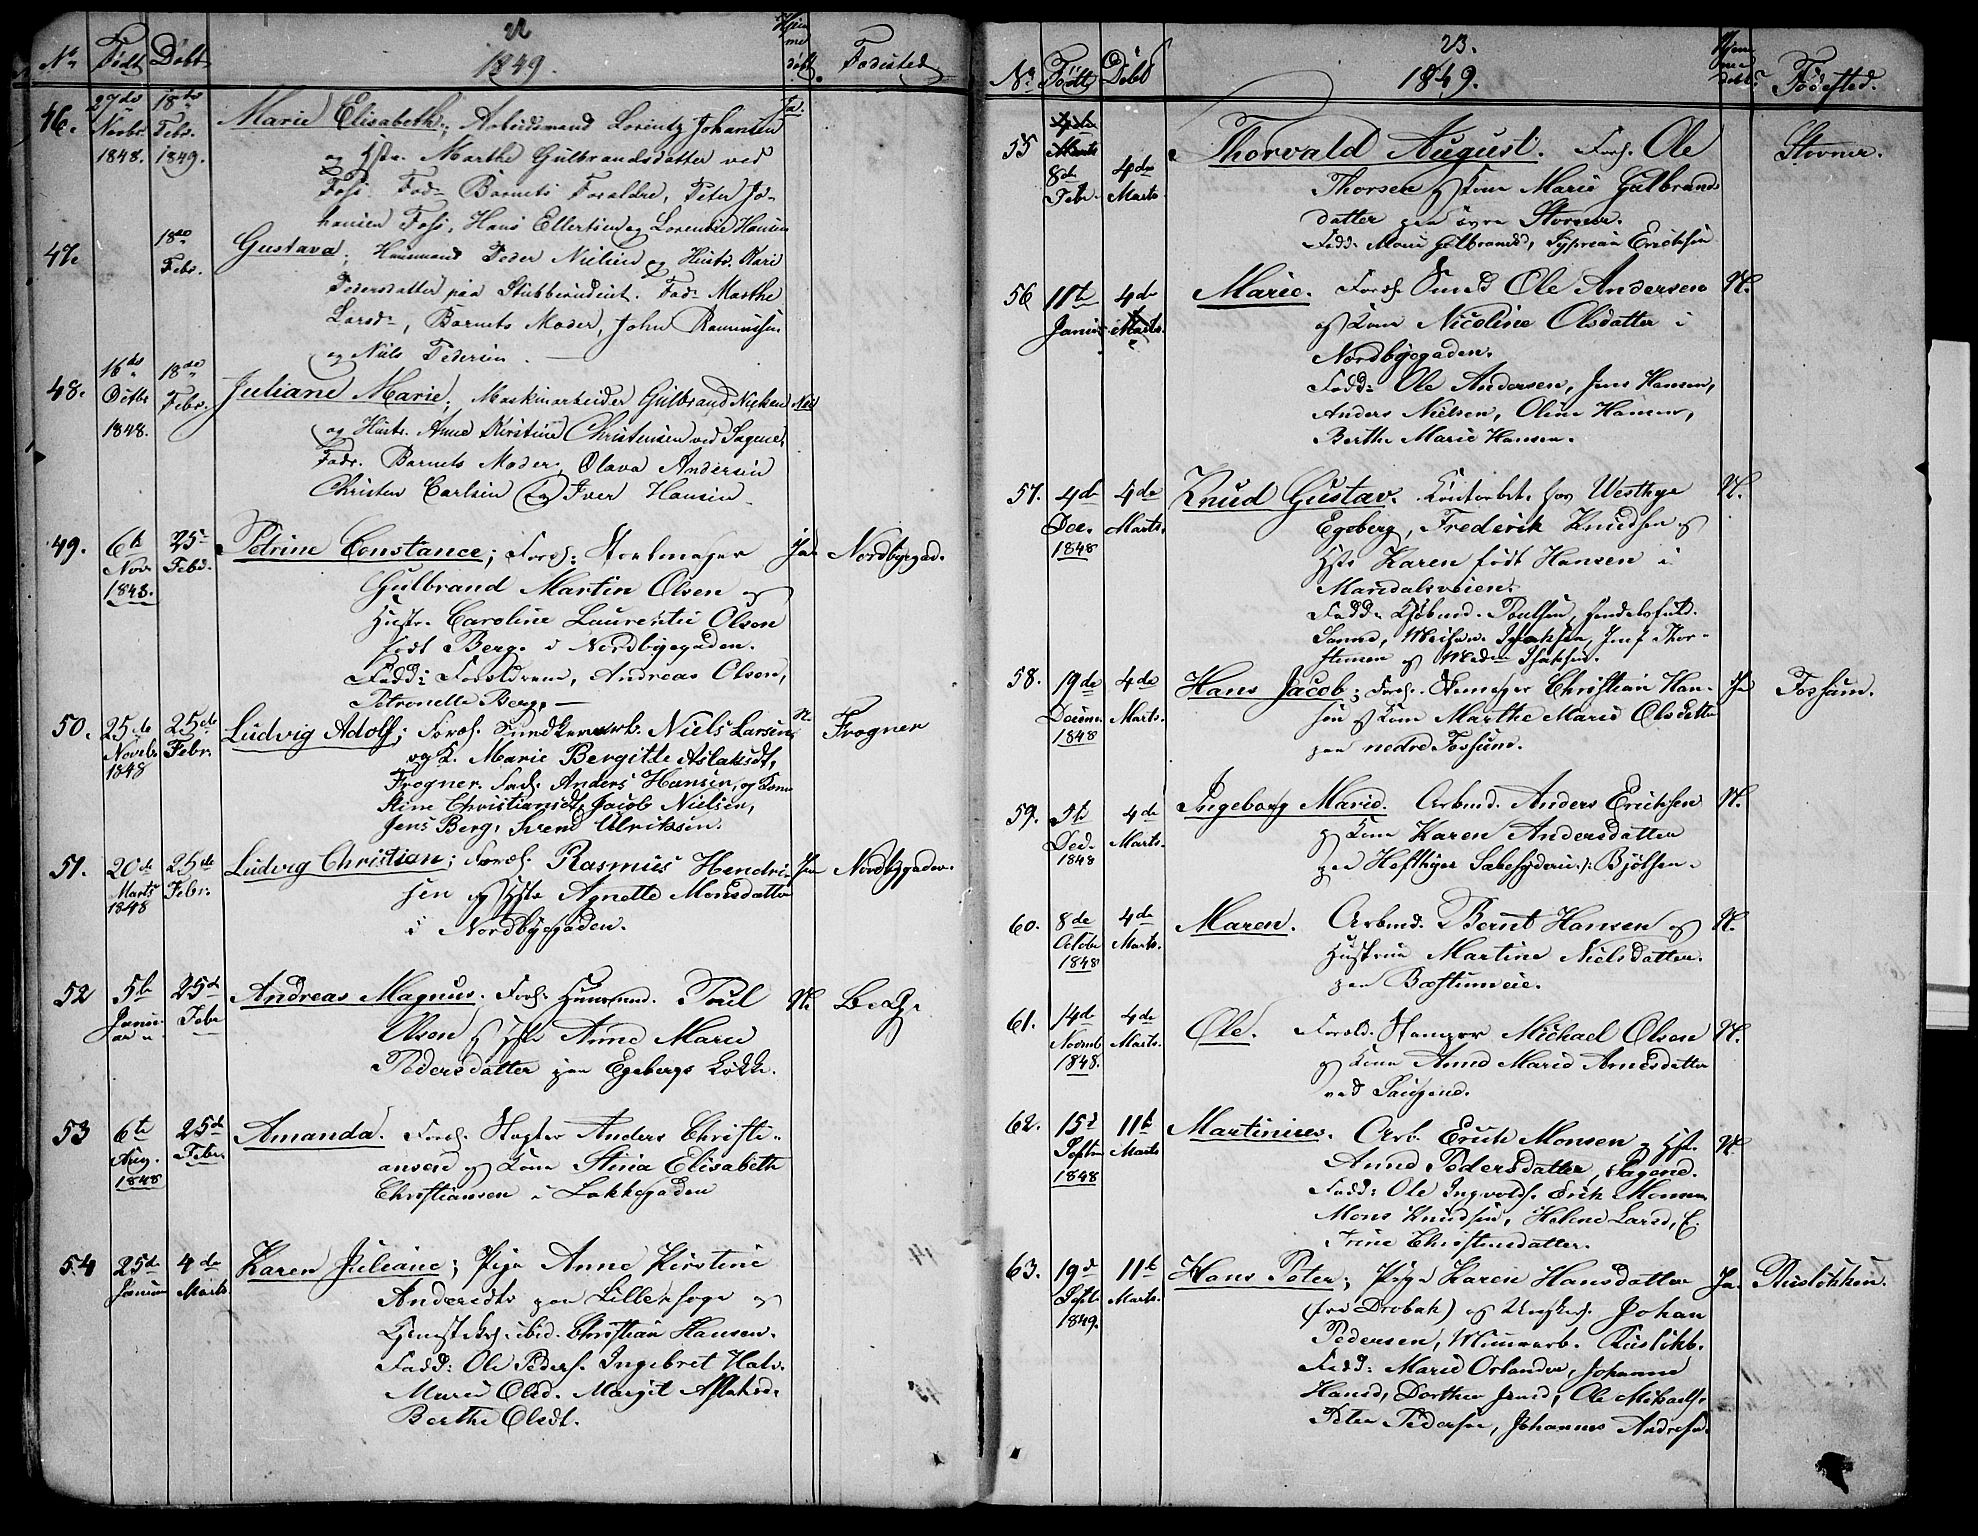 22
1849.
No Født Døbt Hjemmedøbt. Fødested
46. 27de Novbr. 1848. 18de Febr. 1849. Marie Elisabeth; Arbeidsmand Lorentz Johansen Ja.
og Hstr. Marthe Gulbrandsdatter ved
Foss. Fad: Barnets Forældre, Peter Jo-
hansen Foss, Hans Ellertsen og Lorentse Hansen
47. 18de Febr. Gustava; Huusmand Peder Nielsen og Hustr. Kari
Pedersdatter paa Stubberudeiet. Fad: Marthe
Larsdr, Barnets Moder, John Rasmussen
og Niels Pedersen.
48. 16de Octbr 1848. 18de Febr. Juliane Marie; Maskinarbeider Gulbrand Nielsen Nei
og Hustr. Anne Kirstine Christensen ved Sagene.
Fadr. Barnets Moder, Olava Andersen
Christen Carlsen og Iver Hansen
49. 6te Nov. 1848. 25de Febr. Petrine Constance; Foræl: Skomager Ja Nordbyegad.
Gulbrand Martin Olsen og
Hustr. Caroline Laurentie Olsen
født Berg i Nordbyegaden.
Fadd: Forældrene, Andreas Olsen,
Petronelle Berg,
50. 25de Novebr 1848 25de Febr. Ludvig Adolf; Foræl. Niels Larsen N. Frogner
og K. Marie Bergitte Aslaksdt,
Frogner. Fad. Anders Hansen, og Kone
Stine Christiansdt, Jacob Nielsen,
Jens Berg, Svend Ulriksen.
51. 20de Marts 1848 25de Febr. Ludvig Christian; Foræl. Rasmus Hendri- Ja Nordbygaden.
sen og Hste Agnette Monsdatter
i Nordbyegaden.
52 5te Januar 25de Febr Andreas Magnus. Foræl. Huusmd. Poul N. Berg.
Olsen og Hste Anne Marie
Pedersdatter paa Egebergs Løkke.
53 6te Aug. 1848 25de Febr. Amanda. Foræl. Slagter Anders Christi-
ansen og Kone Stina Elisabeth
Christiansen i Lakkegaden
54 25de Januar 4de Marts Karen Juliane; Pige Anne Kirstine
Andersdtr paa Lillehoge og
ibid. Christian Hansen.
Fadd: Ole Peders. Ingebret Halv.
Marie Olsd. Margit Aslaksd.
Berthe Olsdt.
23.
1849.
No. Født Døbt Hjemmedøbt? Fødested.
55 4de Marts 8de Febr. 4de Marts. Thorvald August. Foræl. Ole Stovner.
Thorsen og Kone Marie Gulbrands
datter paa øvre Stovner.
Fadd: Marie Gulbrandsd, Syprian Ericksen
56 11te Januar 4de Marts. Marie. Foræl. Smed Ole Andersen N.
og Kone Nicoline Olsdatter i
Nordbyegaden.
Fadd: Ole Andersen, Jens Hansen,
Anders Nielsen, Oline Hansen,
Berthe Marie Hansen.
57. 4de Dec. 1848 4de Marts. Knud Gustav. Westhye N.
Egeberg, Frederik Knudsen og
Hste Karen født Hansen i
Maridalsveien.
Fadd: Kjøbmd. Poulsen,
58. 19de Decem 1848 4de Marts. Hans Jacob; Foræl. Skomager Christian Han- Ja Fossum.
sen og Kone Marthe Marie Olsdatter
paa nedre Fossum.
59. 5te Dec. 1848 4de Marts. Ingeborg Marie. Arbmd. Anders Ericksen N.
og Kone Karen Andersdatter
paa Hefthyes Bjølsen.
60. 8de Octobr 1848 4de Marts. Maren. Arbmd. Bernt Hansen og N.
Hustrue Martine Nielsdatter.
paa Bæstumeie.
61. 14de Novemb 1848. 4de Marts. Ole. Foræld. Stamper Michael Olsen N.
og Kone Anne Marie Arnesdatter
ved Saugene.
62. 15de Septbr 1848 11te Marts Martinius. Arb. Erick Monsen og Hst. N.
Anne Pedersdatter, Sagene.
Fadd: Ole Ingvolds. Erik Monsen
Mons Knudsen, Helene Larsd, E.
Trine Christensdatter.
63. 19de Septbr 1849. 11te Marts. Hans Peter; Pige Karen Hansdatter Ja. Ruseløkken.
(fra Drøbak) og Ungkarl. Johan
Pedersen, Muurarb. Ruseløkb.
Fadd: Marie Orlander, Johanne
Hansd, Dorthea Jensd, Ole Mikaels.
Peter Pedersen, Johannes Andresen.